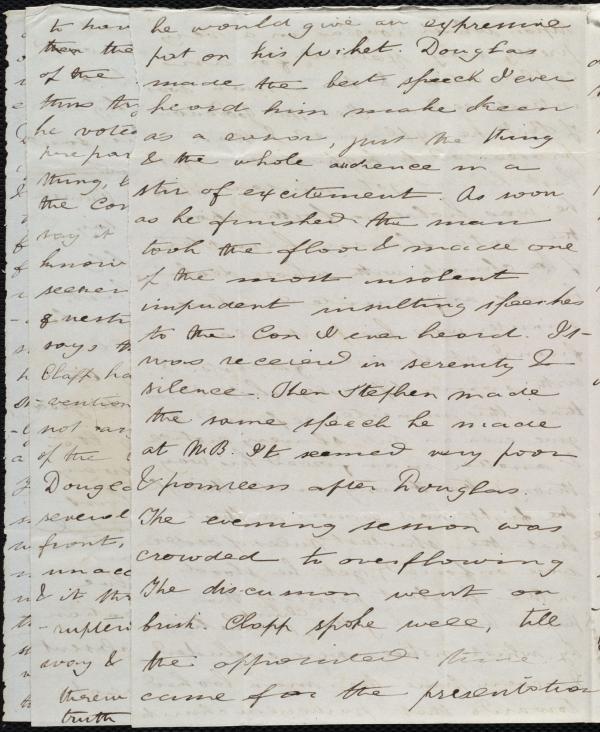 he would give an expressive
pat on his pocket. Douglas
made the best speech I ever
heard him make keen
as a razor, just the thing
& the whole audience in a
stir of excitement. As soon
as he finished the man
took the floor & made one
of the most insolent
impudent insulting speeches
to the Con I ever heard. It
was received in serenity &
silence. Then Stephen made
the same speech he made
at NB. It seemed very poor
& powerless after Douglas.
The evening session was
crowded to overflowing
The discussion went on
brisk. Clapp spoke well, till
the appointed time
came for the presentation
to hav
then the
of the
thus th
he vote
prepar
thing, &
the Con
say it
know
seemer
& vest
says th
Clapp ha
-vention
not
of the
Dougla
several
front,
unacc
& it th
-rupteri
away &
therew
truth